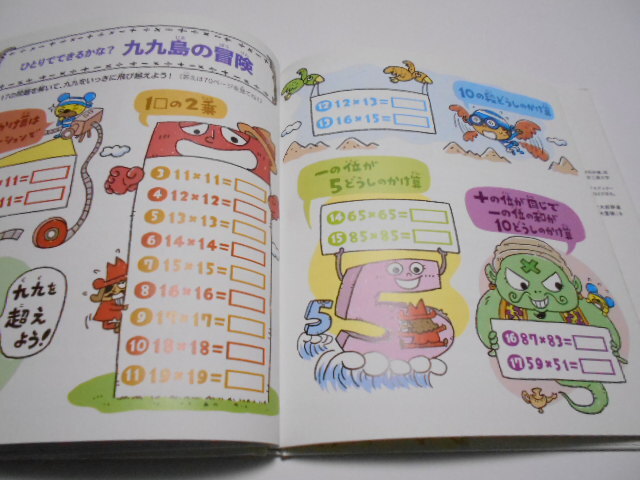 ひとりでできるかな？ 九九島の冒険
17の問題を解いて、九九をいっきに飛び越えよう！
1□の2乗
③ 11×11=
④ 12×12=
⑤ 13×13=
⑥ 14×14=
⑦ 15×15=
⑧ 16×16=
⑨ 17×17=
⑩ 18×18=
⑪ 19×19=
九九を
超え
よう！
⑫ 12×13=
⑬ 16×15=
10の段どうしのかけ算
一の位が
5どうしのかけ算
⑭ 65×65=
⑮ 85×85=
5
十の位が同じで
一の位の和が
10どうしのかけ算
⑯ 87×83=
⑰ 59×51=